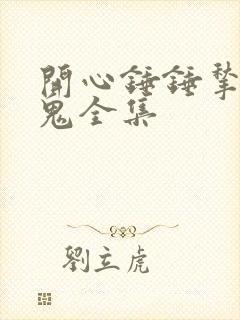 開心錘錘
鬼全集
劉立虎